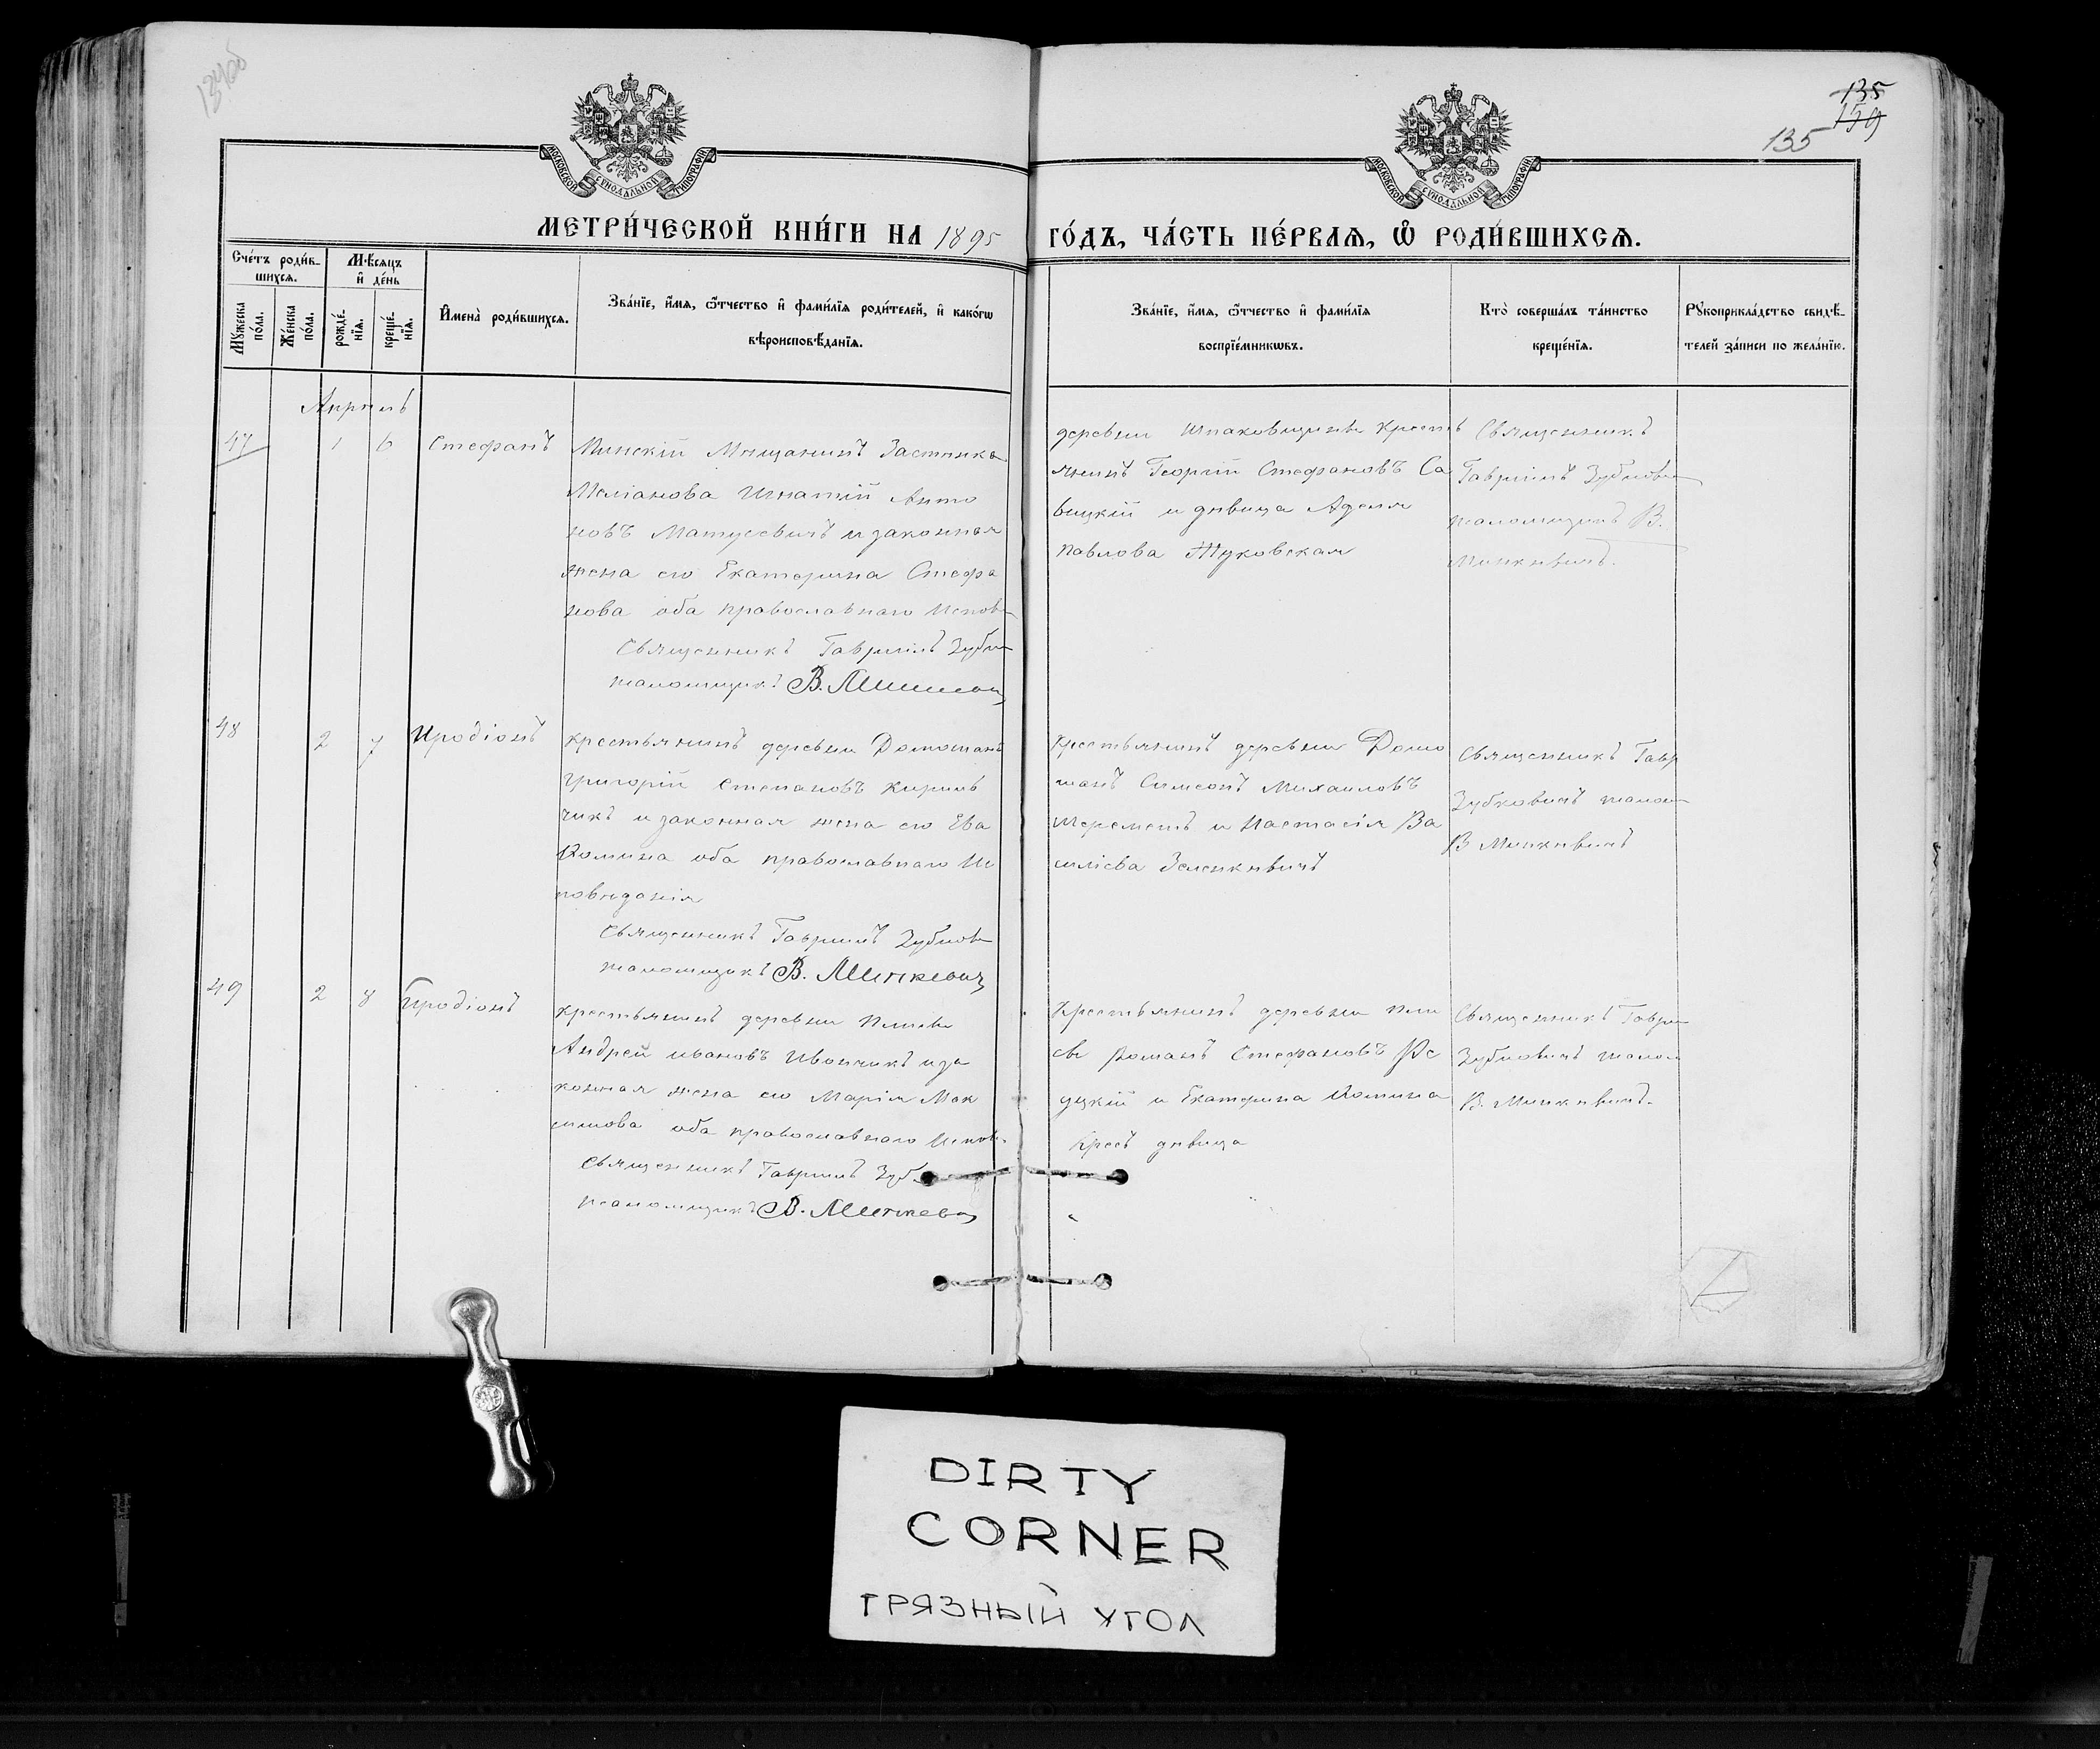 134об
135
159
135
МОСКОВСКОЙ СѴНОДАЛЬНОЙ ТИПОГРАФІИ
МОСКОВСКОЙ СѴНОДАЛЬНОЙ ТИПОГРАФІИ
МЕТРИ́ЧЕСКОЙ КНИ́ГИ НА 1895
ГО́ДЪ, ЧА́СТЬ ПЕ́РВАѦ, Ѡ҆ РОДИ́ВШИХСѦ.
Сче́тъ роди́в-
шихсѧ.
Мѣсяцъ
и҆ де́нь
Мꙋжеска
по́ла.
Же́нска
по́ла.
рожде́-
нїѧ.
креще́-
нїѧ.
И҆мена̀ роди́вшихсѧ.
Зва́нїе, и҆́мѧ, ѻ҆́тчество и҆ фами́лїѧ роди́телей, и҆ како́гѡ
вѣроисповѣ́данїѧ.
Зва́нїе, и҆́мѧ, ѻ҆́тчество и҆ фами́лїѧ
воспрїе́мникѡвъ.
Кто̀ соверша́лъ та́инство
креще́нїѧ.
Рꙋкоприкла́дство свидѣ́-
телей за́писи по жела́нїю.
Апрель
47 1 6 Стефанъ
Минскій Мещанинъ Застенка
Игнатій Анто
новъ Матусевичъ и законная
жена его Екатерина Стефа
нова оба православнаго Испов
Священникъ Гавріилъ Зубко
псаломщикъ В. Минкевич
деревни Шпаковщины Кресть
янинъ Георгій Стефановъ Са
вицкій и девица Аделя
Павлова Жуковская
Священникъ
Гавріилъ Зубкови
псаломщикъ В.
Минкевичъ.
48 2 7 Иродіонъ
Крестьянинъ деревни Домошанъ
Григорій Степановъ Кирильчикъ
и законная жена его Ева
Фомина оба православнаго Ис
поведанія
Священникъ Гавріилъ Зубков
псаломщикъ В. Минкевич
Крестьянинъ деревни Домо
шанъ Симеонъ Михаиловъ
Шереметъ и Настасія Ва
силіева Зенкевичъ
Священникъ Гавр
Зубковичъ псалом
В Минкевичъ
49 2 8 Иродіонъ
Крестьянинъ деревни
Андрей Ивановъ Иванчикъ и за
конная жена его Марія Мак
симова оба православнаго Испов
Священникъ Гавріилъ Зуб
псаломщикъ В. Минкевич
Крестьянинъ деревни
Романъ Стефановъ Ре
уцкій и Екатерина Фомина
Крест девица
Священникъ Гаврі
Зубковичъ псалом
В. Минкевичъ.
DIRTY
CORNER
ГРЯЗНЫЙ УГОЛ